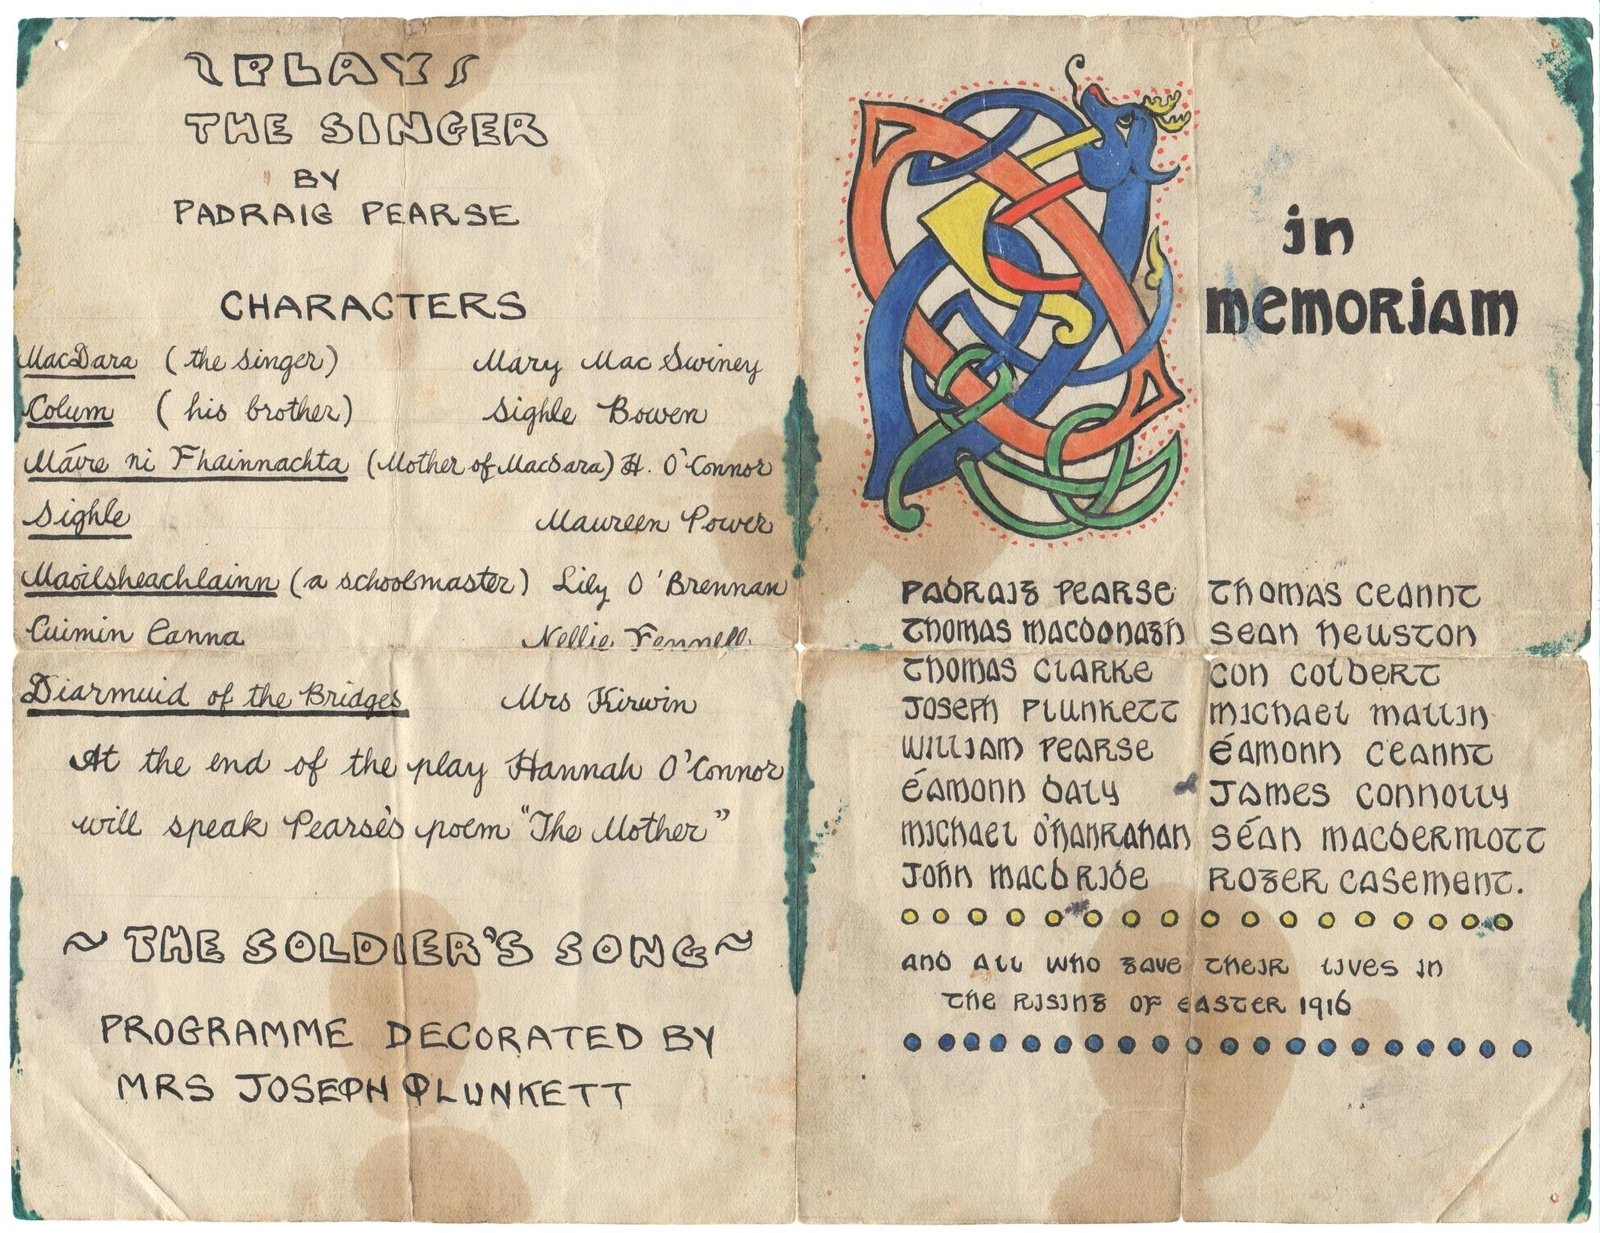 PLAY
THE SINGER
BY
PADRAIG PEARSE
CHARACTERS
MacDara (the singer) Mary Mac Swiney
Colum (his brother) Sighle Bowen
Máire ni Fhainnachta (Mother of MacDara) H. O'Connor
Sighle Maureen Power
Maoilsheachlainn (a schoolmaster) Lily O'Brennan
Cuimin Eanna Nellie Fennell
Diarmuid of the Bridges Mrs Kirwin
At the end of the play Hannah O'Connor
will speak Pearse's poem "The Mother"
~ THE SOLDIER'S SONG ~
PROGRAMME DECORATED BY
MRS JOSEPH PLUNKETT
in
memoriam
PADRAIG PEARSE THOMAS CEANNT
THOMAS MACDONAGH SEAN HEUSTON
THOMAS CLARKE CON COLBERT
JOSEPH PLUNKETT MICHAEL MALLIN
WILLIAM PEARSE ÉAMONN CEANNT
ÉAMONN DALY JAMES CONNOLLY
MICHAEL O'HANRAHAN SÉAN MACDERMOTT
JOHN MACBRIDE ROGER CASEMENT.
AND ALL WHO GAVE THEIR LIVES IN
THE RISING OF EASTER 1916